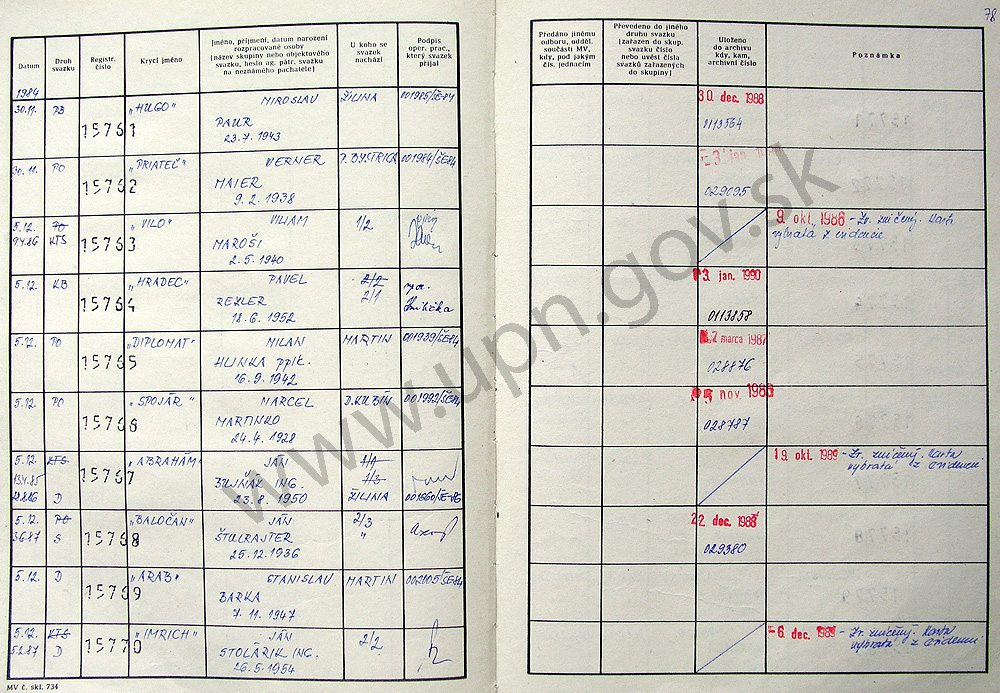 78
Datum
Druh svazku
Registr. číslo
Krycí jméno
Jméno, příjmení, datum narození
rozpracované osoby
(název skupiny nebo objektového
svazku, heslo ag. pátr. svazku
na neznámého pachatele)
U koho se
svazek
nachází
Podpis
oper. prac.,
který svazek
přijal
Předáno jinému
odboru, odděl.
součásti MV,
kdy, pod jakým
čís. jednacím
Převedeno do jiného
druhu svazku
(zařazen do skup.
svazku číslo
nebo uvést čísla
svazků zařazených
do skupiny)
Uloženo
do archivu
kdy, kam,
archivní číslo
Poznámka
1984
30.11. PB 15761 "HUGO" MIROSLAV ŽILINA 001985/ŠE-84
PAUR
23.7. 1943
30. dec. 1988
0113564
30.11. PO 15762 "PRIATEĽ" VERNER P. BYSTRICA 001984/ŠE84
MAIER
9.2. 1938
jan.
029095
5.12. PO 15763 "VILO" VILIAM 1/2
9.4.86 KTS MAROŠI
2.5. 1940
9. okt. 1986 - Zv. zničený. Karta
vybratá z evidencie
5.12. KB 15764 "HRADEC" PAVEL 2/2
REXLER 2/1
18.6. 1952
3. jan. 1990
0113858
5.12. PO 15765 "DIPLOMAT" MILAN MARTIN 001939/ŠE84
HLINKA pplt.
16.9. 1942
marca 1987
028876
5.12. PO 15766 "SPOJÁR" MARCEL D. KUBÍN 001992/ŠE-84
MARTINKO
24.4. 1928
5 nov. 1986
028787
5.12. KTS 15767 "ABRAHÁM" JÁN 1/1
13.4.85 BUJŇÁK ING. 1/3
D 23.8. 1950 ŽILINA 001660/ŠE-86
19. okt. 1989 - Zv. zničený. Karta
vybratá z evidencie
5.12. PO 15768 "BALOČAN" JÁN 2/3
3.6.87 S ŠTULRAJTER "
25.12. 1936
22 dec. 1988
029380
5.12. D 15769 "ARAB" STANISLAV MARTIN 002005/ŠE84
BARKA
7.11. 1947
5.12. KTS 15770 "IMRICH" JÁN 2/2
5.2.87 D STOLÁRIK ING.
26.5. 1954
6. dec. 1989 - Zv. zničený. Karta
vybratá z evidencie
MV č. skl. 734
www.upn.gov.sk